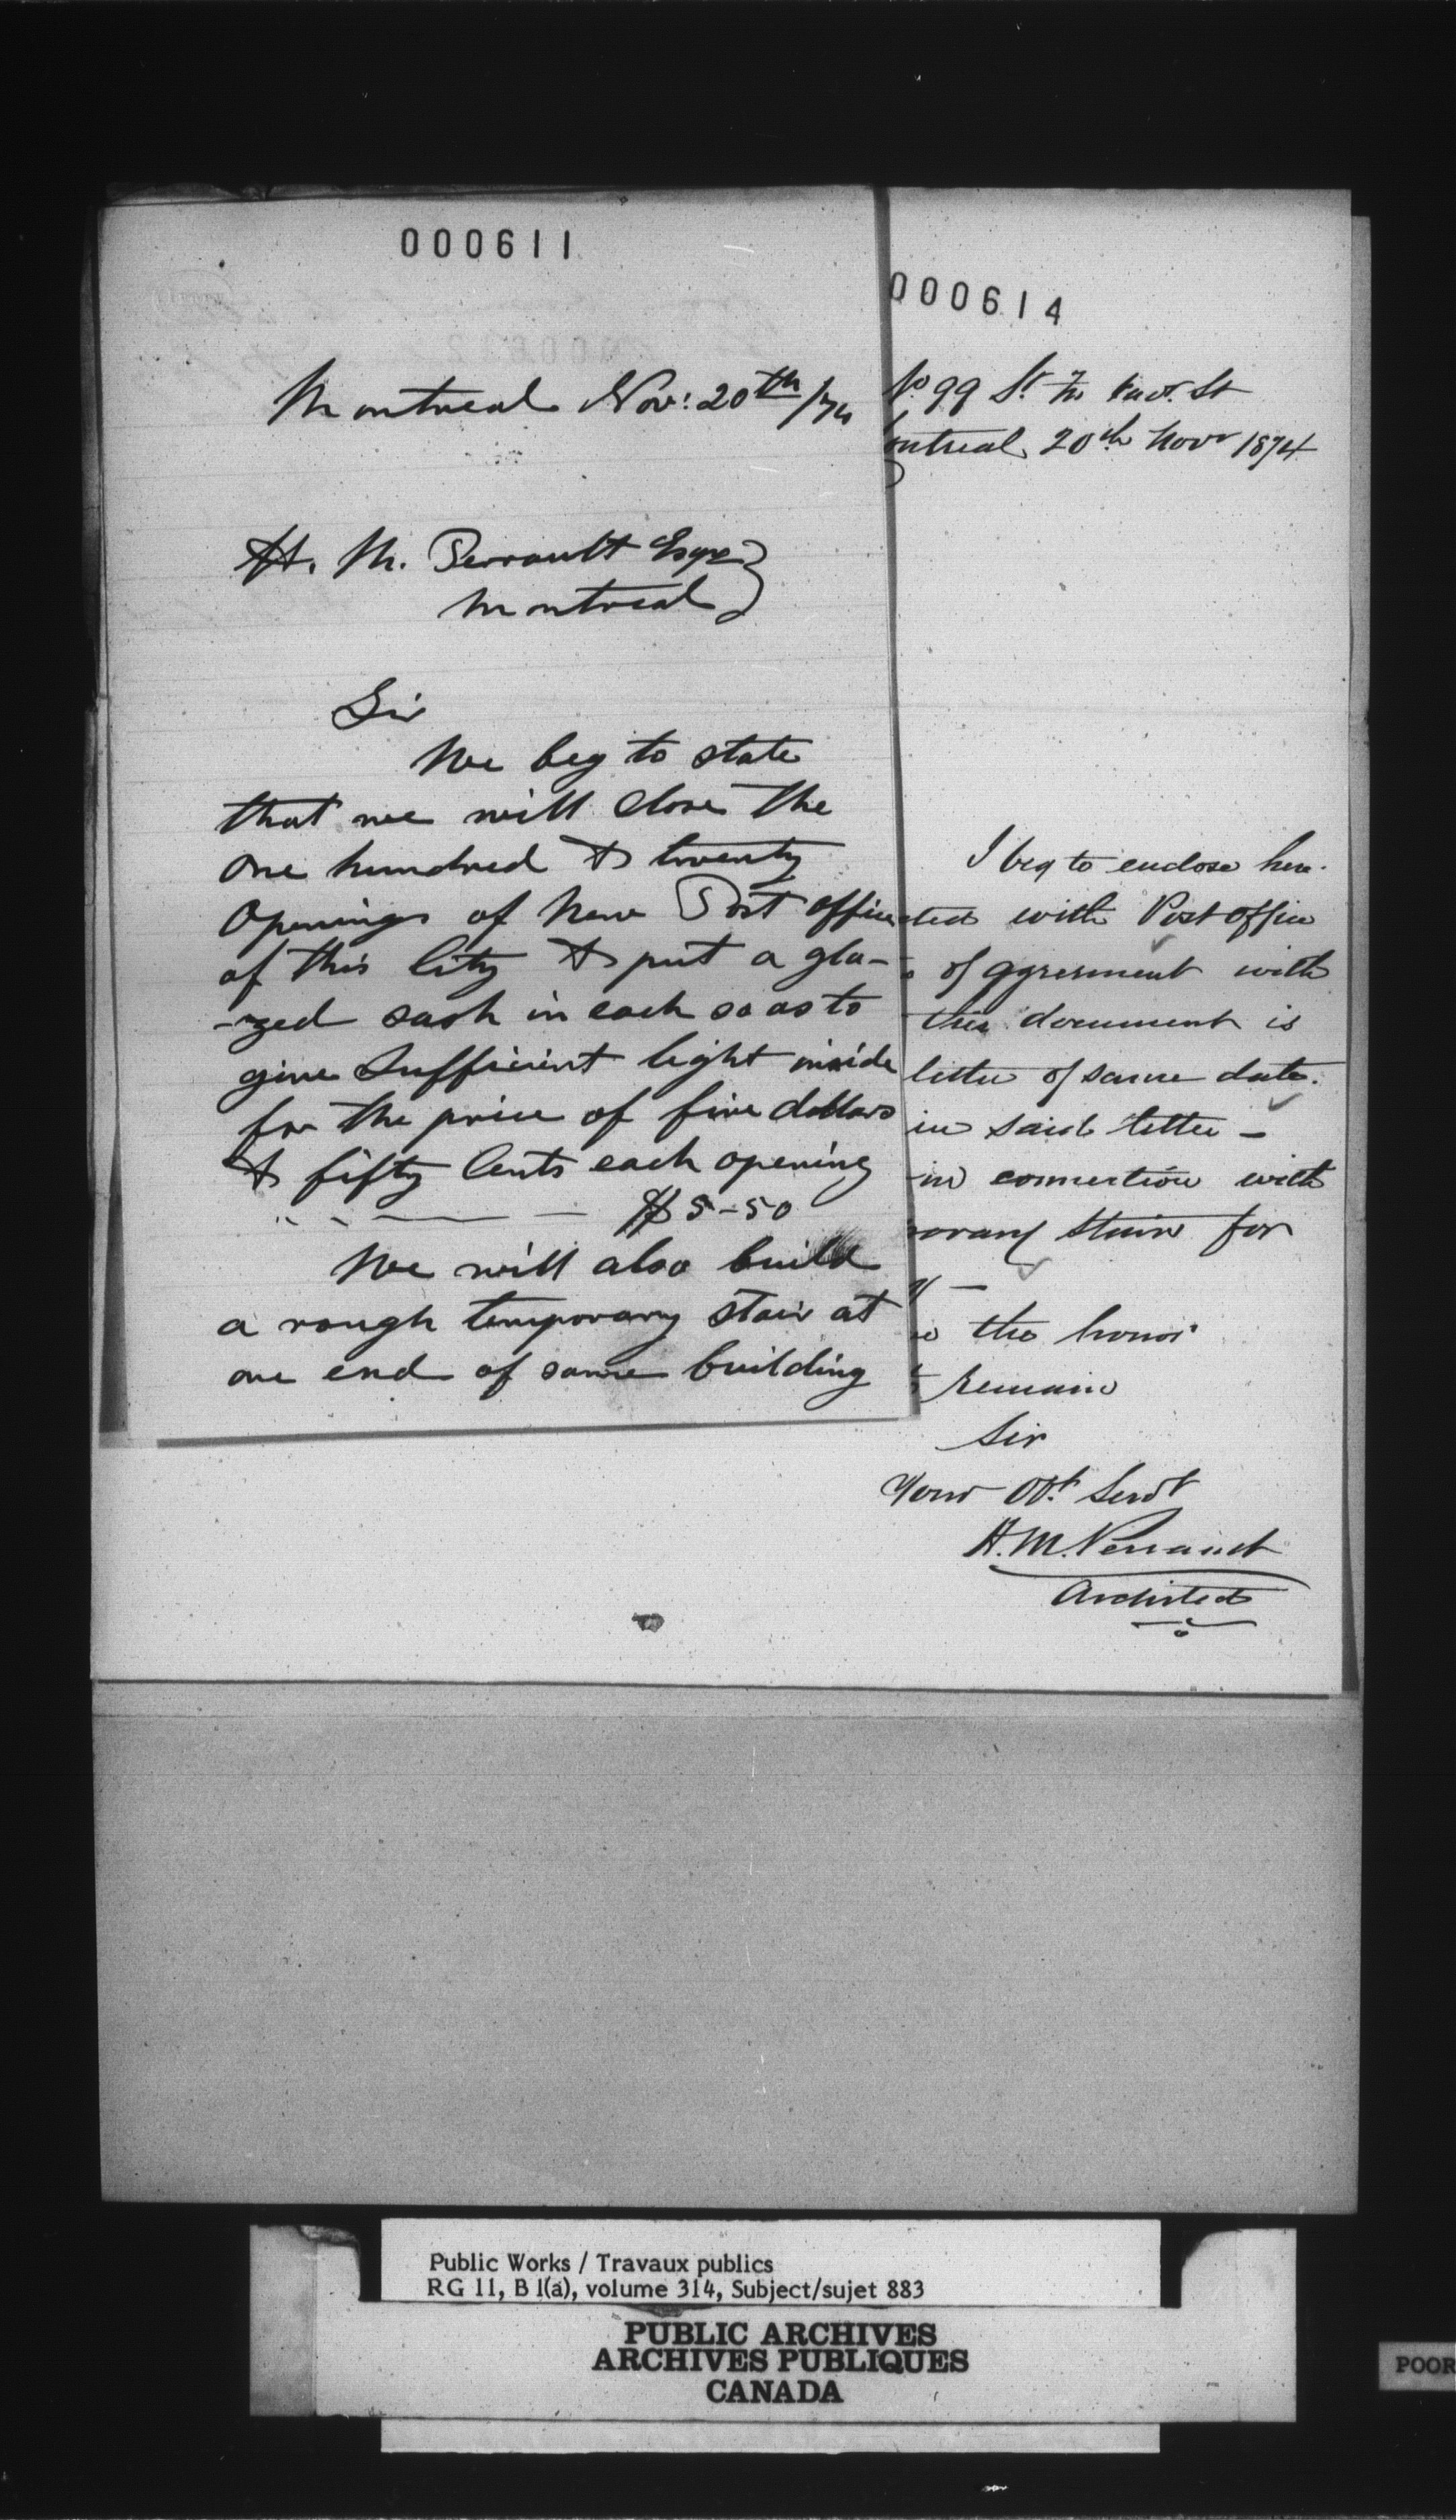 000611
Montreal Nov: 20th/74
H. M. Perrault Esqre
Montreal
Sir
We beg to state
that we will close the
one hundred & twenty
Openings of New Post office
of this City & put a gla-
-zed sash in each so as to
give Sufficient light inside
for the price of five dollars
& fifty Cents each opening
$5-50
We will also build
a rough temporary stair at
one end of same building
000614
No 99 St
ontreal 20th Novr 1874
I beg to enclose here-
cted with Post office
of agreement with
this document is
letter of same date.
in said letter -
in connection with
orary stairs for
the honor
remain
Sir
Your Obt. Servt
H. M. Perrault
Architect
Public Works / Travaux publics
RG 11, B 1(a), volume 314, Subject/sujet 883
PUBLIC ARCHIVES
ARCHIVES PUBLIQUES
CANADA
POOR